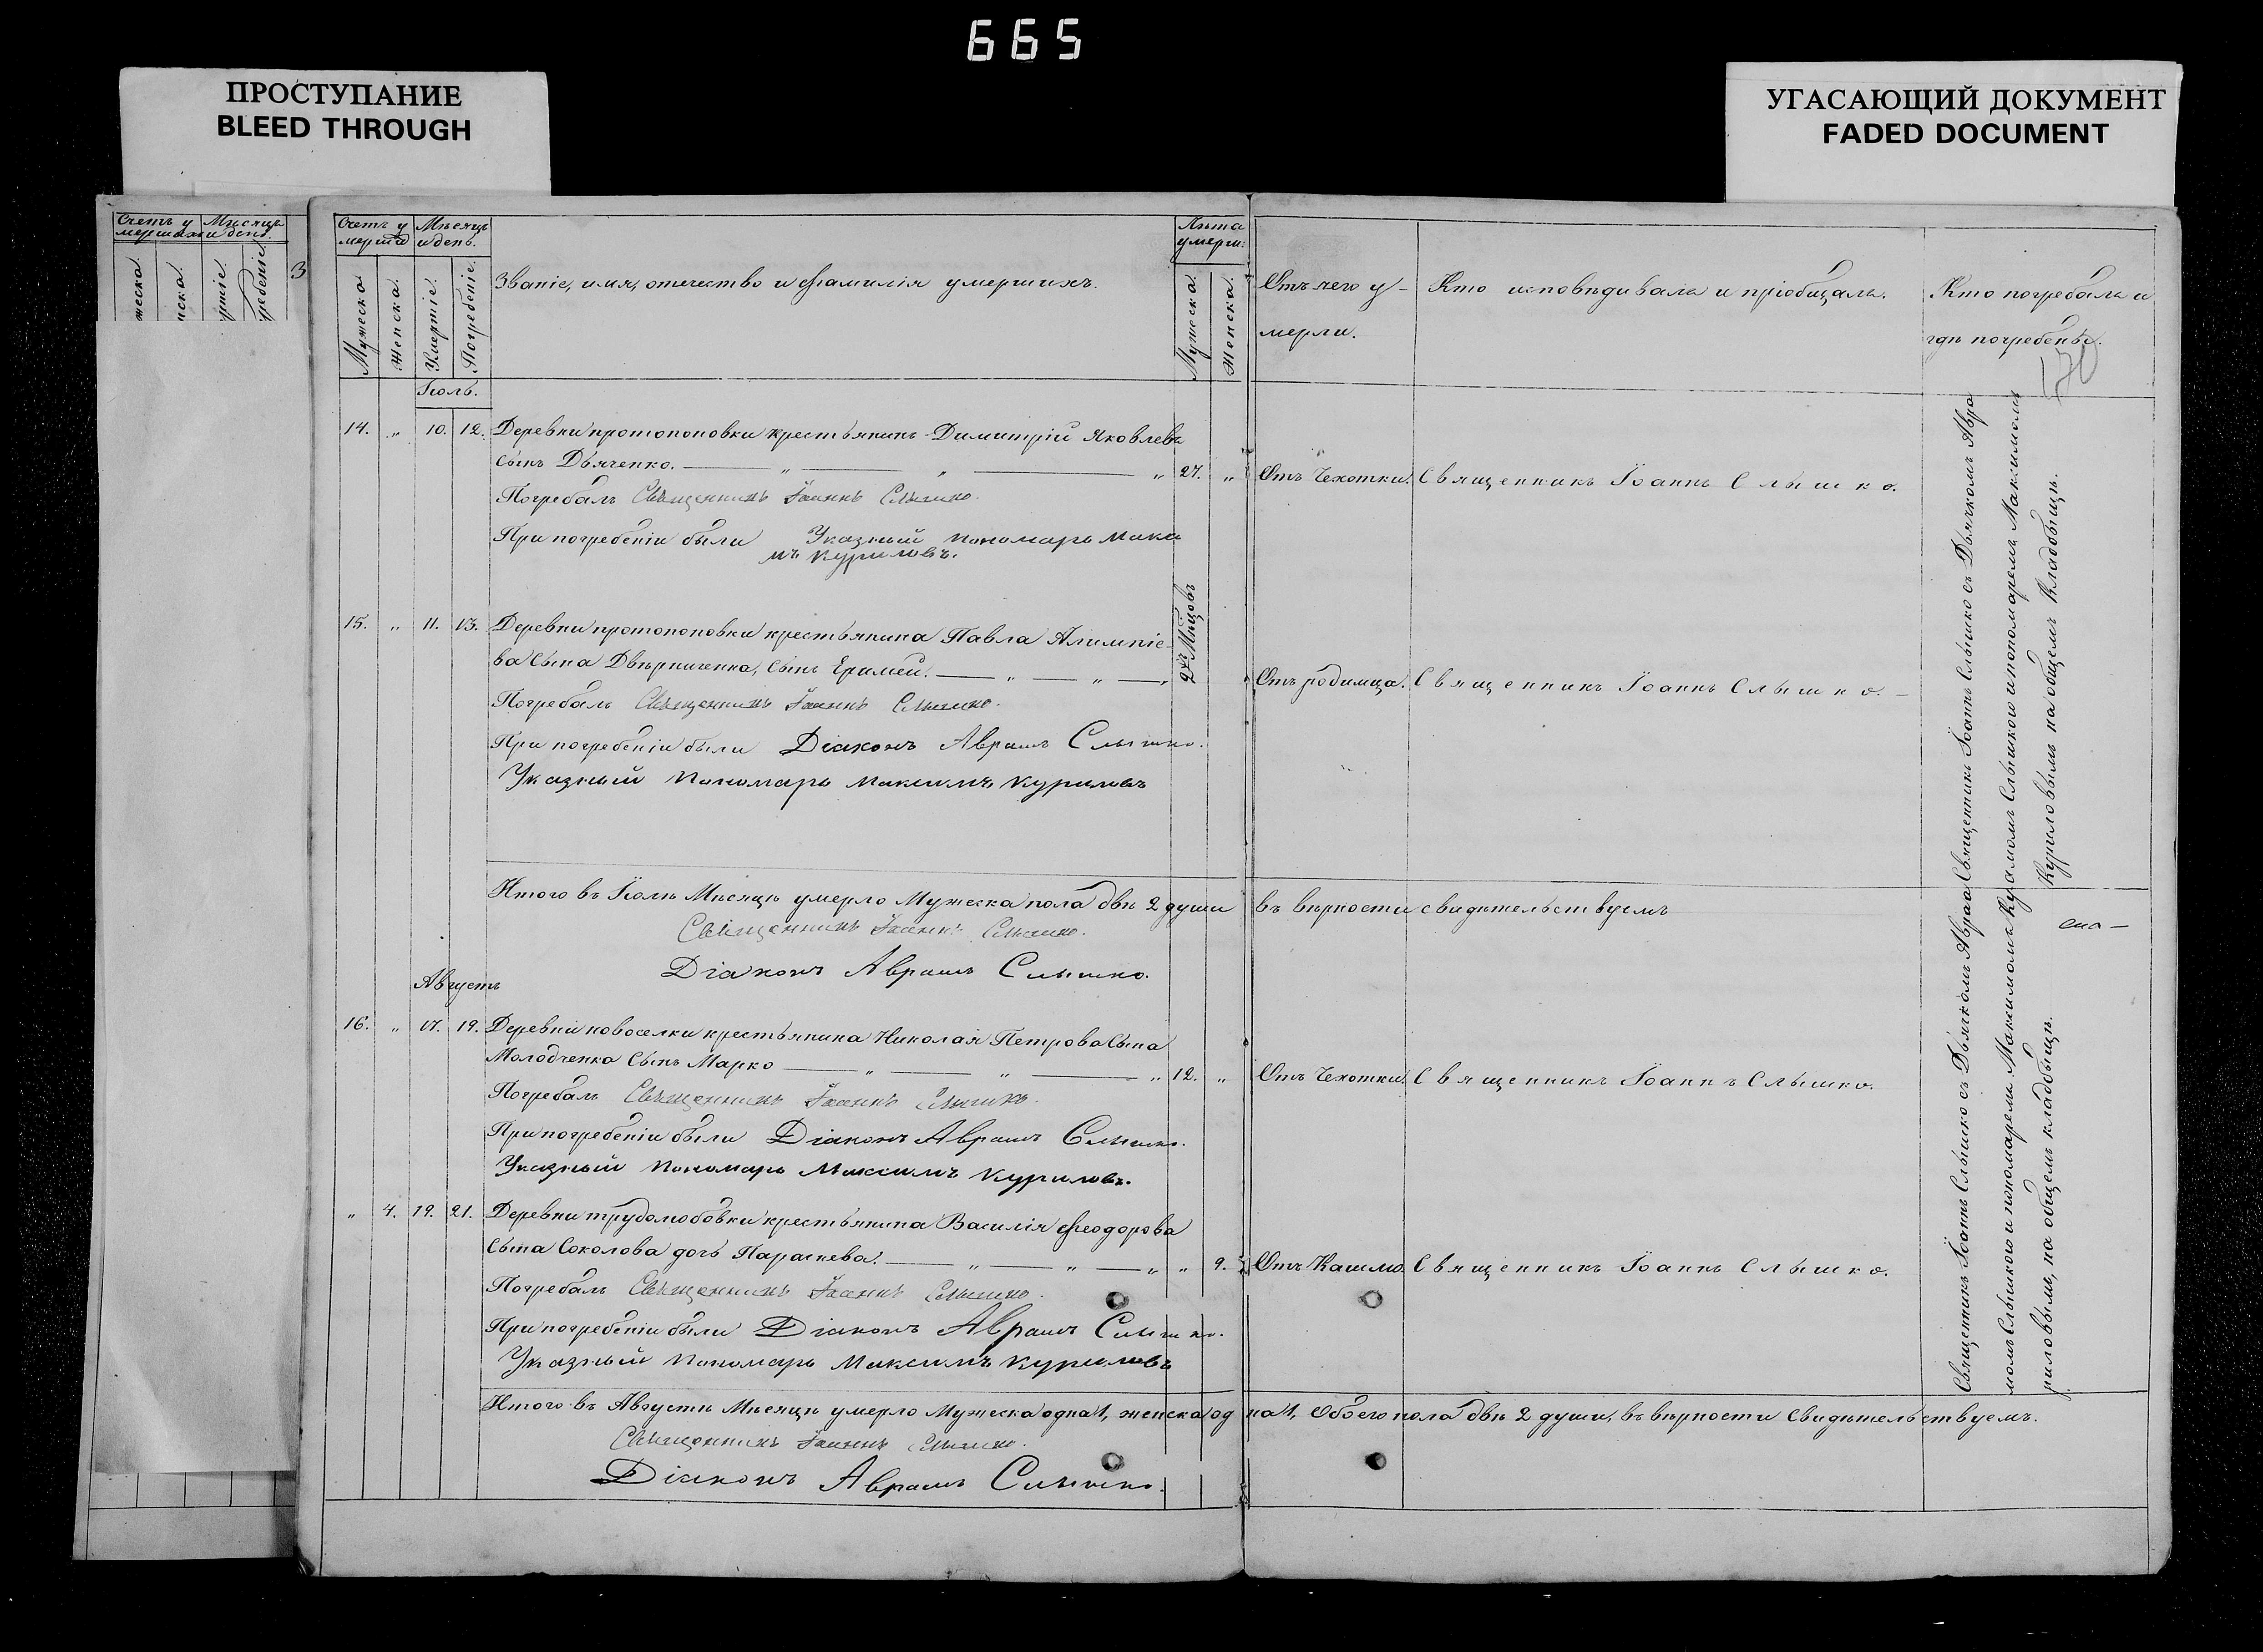 665
ПРОСТУПАНИЕ
BLEED THROUGH
УГАСАЮЩИЙ ДОКУМЕНТ
FADED DOCUMENT
Счетъ у Мѣсяцъ
мерших и день.
Счетъ у
мерш
Мѣсяцъ
и день.
Мужеска.
Женска.
Умертіе.
Погребеніе.
Званіе, имя, отечество и фамилія умершихъ.
Лѣта
умерш:
Мужеска.
Женска.
Отъ чего у-
мерли.
Кто исповѣдивалъ и пріобщалъ.
Кто погребалъ и
гдѣ погребенъ.
170
Іюль.
14. „ 10. 12. Деревни протопоповки крестьянинъ Димитрій Яковлевъ
сынъ Дьяченко. „ „ „ 27. „ Отъ Чехотки. Священникъ Іоаннъ Слышко.
Погребалъ Священникъ Іоаннъ Слышко.
При погребеніи были Указный пономарь Макси
мъ Куриловъ.
15. „ 11. 13. Деревни протопоповки крестьянина Павла Алимпіе-
2хъ Мѣцовъ
ва Сына Двѣрниченка, Сынъ Еримей. „ „ „ Отъ родимца. Священникъ Іоаннъ Слышко.
Погребалъ Священникъ Іоаннъ Слышко.
При погребеніи были Діаконъ Аврамъ Слышко.
Указный Пономарь Максимъ Куриловъ
Итого въ Іюлѣ Мѣсяцѣ умерло Мужеска пола двѣ 2 души въ вѣрности свидѣтельствуемъ
Священникъ Іоаннъ Слышко.
Діаконъ Аврамъ Слышко.
Августъ
16. „ 17. 19. Деревни новоселки крестьянина Николая Петрова Сына
Молодченка Сынъ Марко „ „ „ 12. „ Отъ Чехотки. Священникъ Іоаннъ Слышко.
Погребалъ Священникъ Іоаннъ Слышко.
При погребеніи были Діаконъ Аврамъ Слышко.
Указный Пономарь Максимъ Куриловъ.
„ 4. 19. 21. Деревни трудолюбовки крестьянина Василія Феодорова
Сына Соколова дочь Параскева. „ „ „ „ 9. Отъ Кашлю. Священникъ Іоаннъ Слышко.
Погребалъ Священникъ Іоаннъ Слышко.
При погребеніи были Діаконъ Аврамъ Слышко.
Указный Пономарь Максимъ Куриловъ
Итого въ Августѣ Мѣсяцѣ умерло Мужеска одна 1, женска одна 1, Обоего пола двѣ 2 души, въ вѣрности Свидѣтельствуемъ.
Священникъ Іоаннъ Слышко.
Діаконъ Аврамъ Слышко.
Священникъ Іоаннъ Слышко съ Дьячкомъ Авра
Куриловымъ на общемъ кладбыщѣ.
Священникъ Іоаннъ Слышко съ Дьячкомъ Авраа
риловымъ, на общемъ кладбыщѣ.